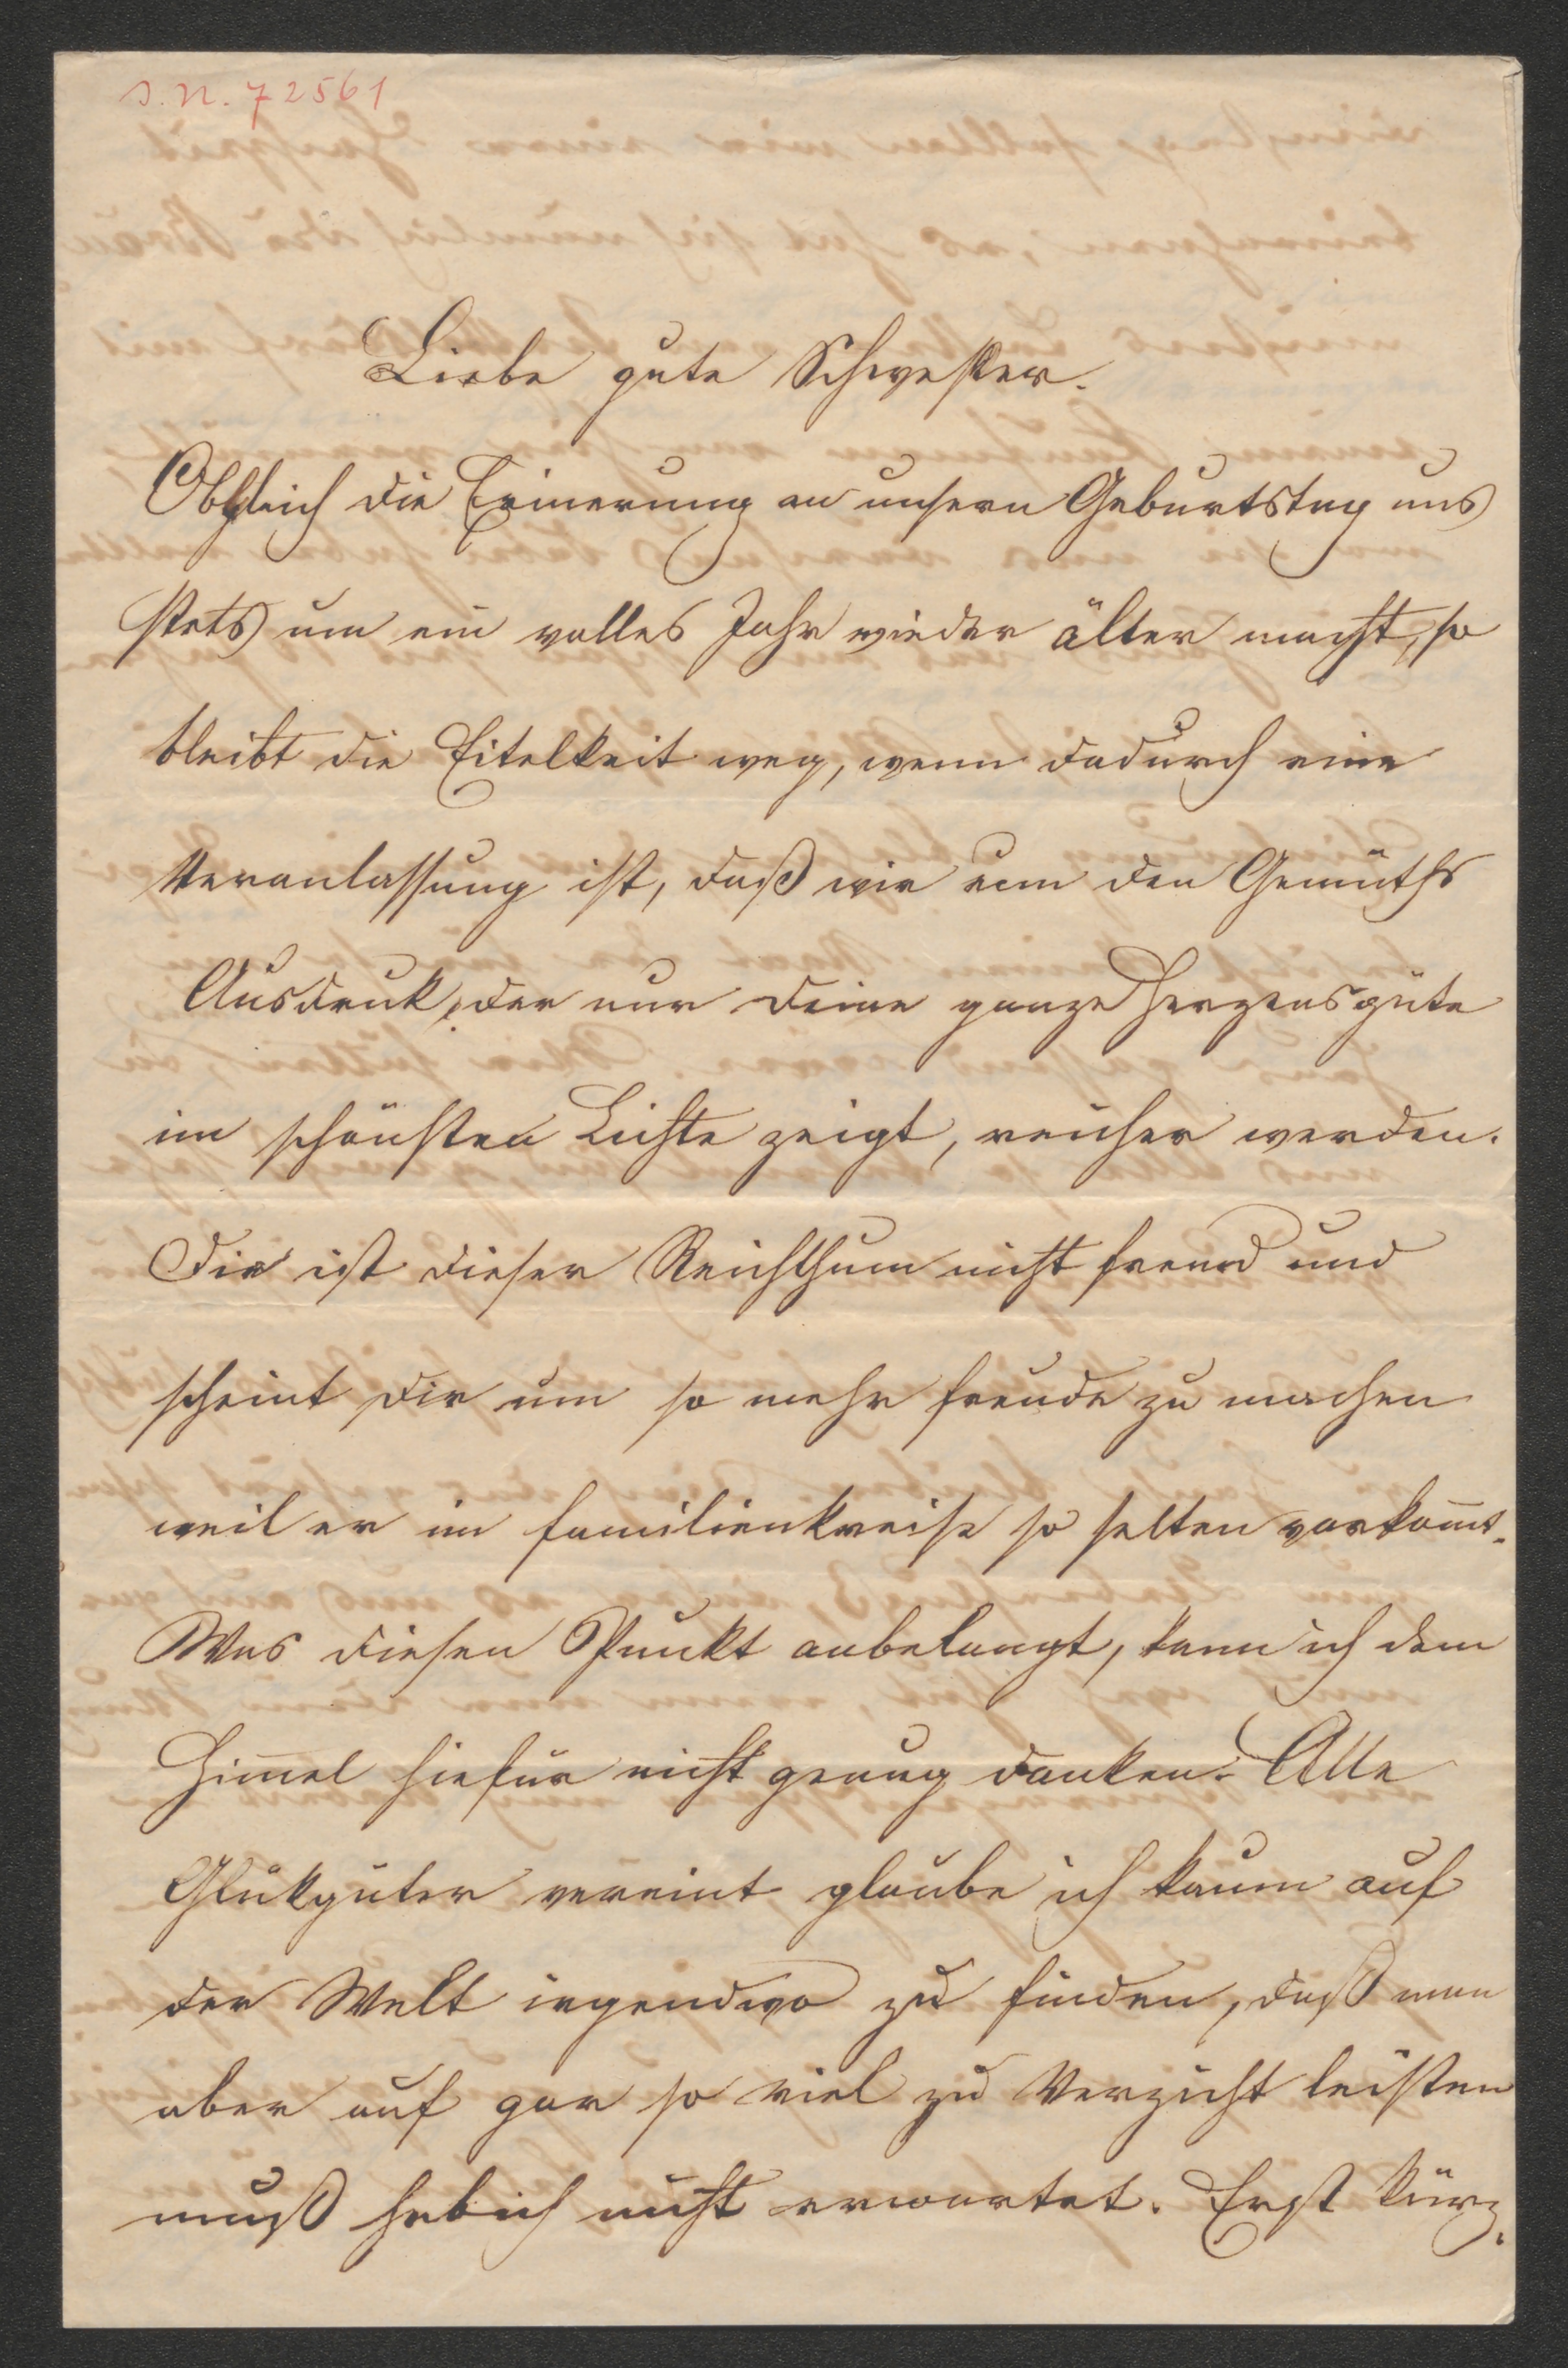 I. N. 72561
Liebe gute Schwester.
Obgleich die Erinerung an unsern Geburtstag uns
stets um ein volles Jahr wieder älter macht, so
bleibt die Eitelkeit weg, wenn dadurch eine
Veranlassung ist, daß wir um den Gemüths
Ausdruk, der nur Deine ganze Herzensgüte
im schönsten Lichte zeigt, reicher werden.
Dir ist dieser Reichthum nicht fremd und
scheint Dir um so mehr Freude zu machen
weil er im Familienkreise so selten vorkom̄t.
Was diesen Punkt anbelangt, kann ich dem
Him̄el hiefür nicht genug danken. Alle
Glükgüter vereint glaube ich kaum auf
der Welt irgendwo zu finden, daß man
aber auf gar so viel zu Verzicht leisten
muß hab ich nicht erwartet. Erst kürz-